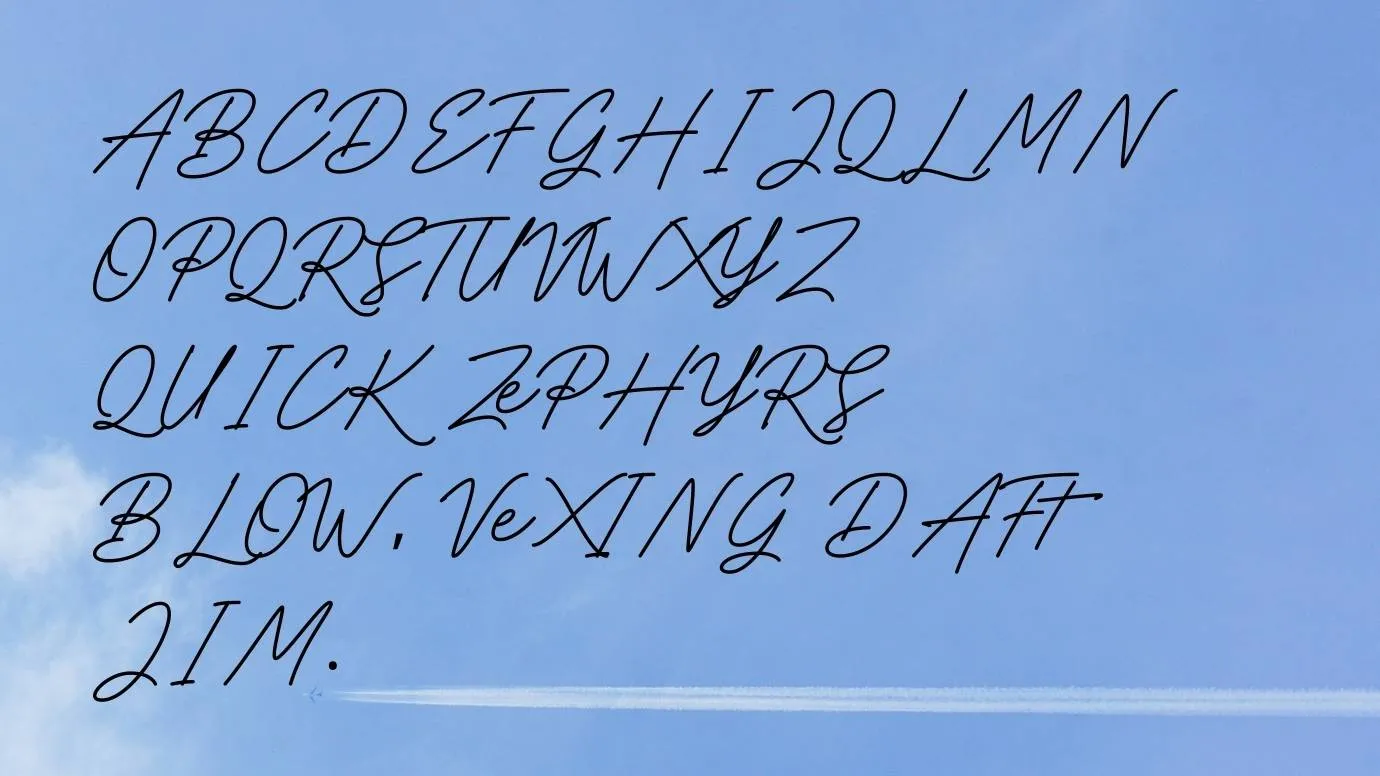 ABCDEFGHIJQLMN
OPQRSTUVWXYZ
QUICK ZePHYRS
BLOW, VeXING DAFt
JIM.